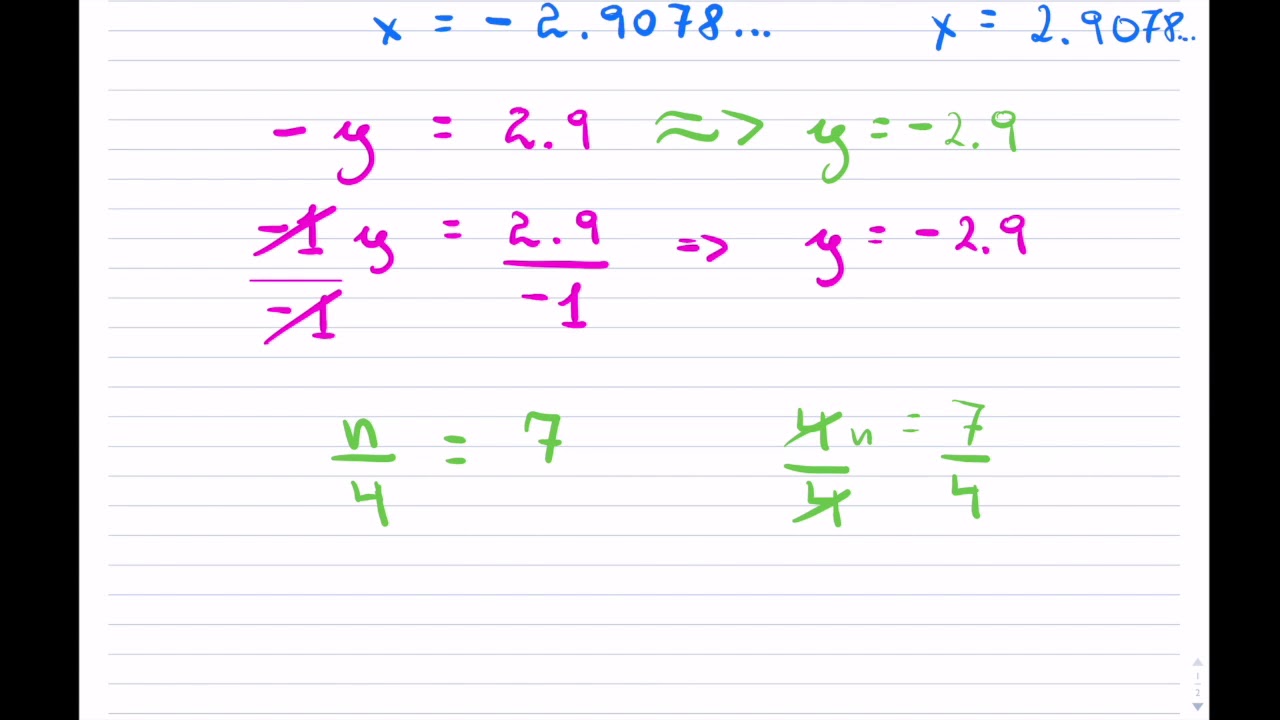 x = - 2.9078... x = 2.9078...
- y = 2.9 ≈> y = - 2.9
-1/-1 y = 2.9/-1 => y = - 2.9
n/4 = 7 4/4 n = 7/4
1
2